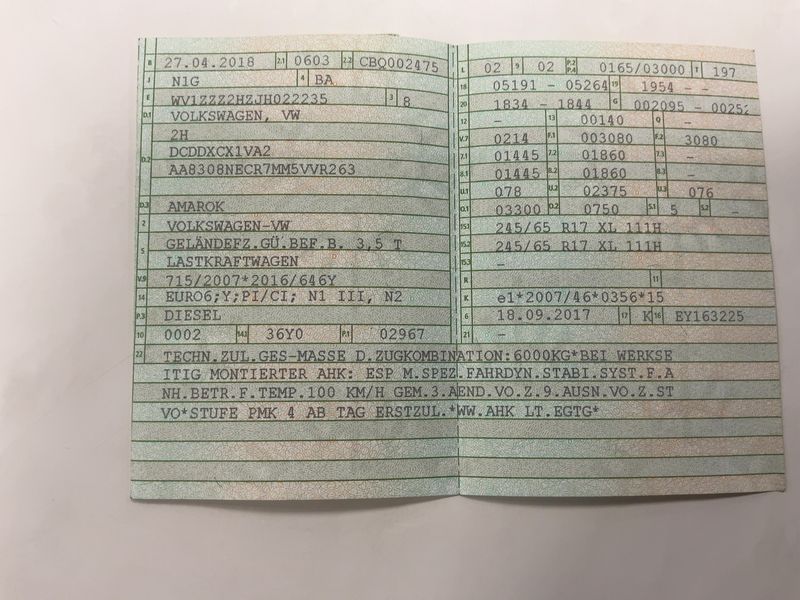 B 27.04.2018 2.1 0603 2.2 CBQ002475
J N1G 4 BA
E WV1ZZZ2HZJH022235 3 8
D.1 VOLKSWAGEN, VW
2H
D.2 DCDDXCX1VA2
AA8308NECR7MM5VVR263
D.3 AMAROK
2 VOLKSWAGEN-VW
5 GELÄNDEFZ.GÜ.BEF.B. 3,5 T
LASTKRAFTWAGEN
V.9 715/2007*2016/646Y
14 EURO6;Y;PI/CI; N1 III, N2
P.3 DIESEL
10 0002 14.1 36Y0 P.1 02967
L 02 9 02 P.2 P.4 0165/03000 T 197
18 05191 - 05264 19 1954 - -
20 1834 - 1844 G 002095 - 00252
12 - 13 00140 Q -
V.7 0214 F.1 003080 F.2 3080
7.1 01445 7.2 01860 7.3 -
8.1 01445 8.2 01860 8.3 -
U.1 078 U.2 02375 U.3 076
O.1 03300 O.2 0750 S.1 5 S.2 -
15.1 245/65 R17 XL 111H
15.2 245/65 R17 XL 111H
15.3 -
R 11
K e1*2007/46*0356*15
6 18.09.2017 17 K 16 EY163225
21 -
22 TECHN.ZUL.GES-MASSE D.ZUGKOMBINATION:6000KG*BEI WERKSE
ITIG MONTIERTER AHK: ESP M.SPEZ.FAHRDYN.STABI.SYST.F.A
NH.BETR.F.TEMP.100 KM/H GEM.3.AEND.VO.Z.9.AUSN.VO.Z.ST
VO*STUFE PMK 4 AB TAG ERSTZUL.*WW.AHK LT.EGTG*